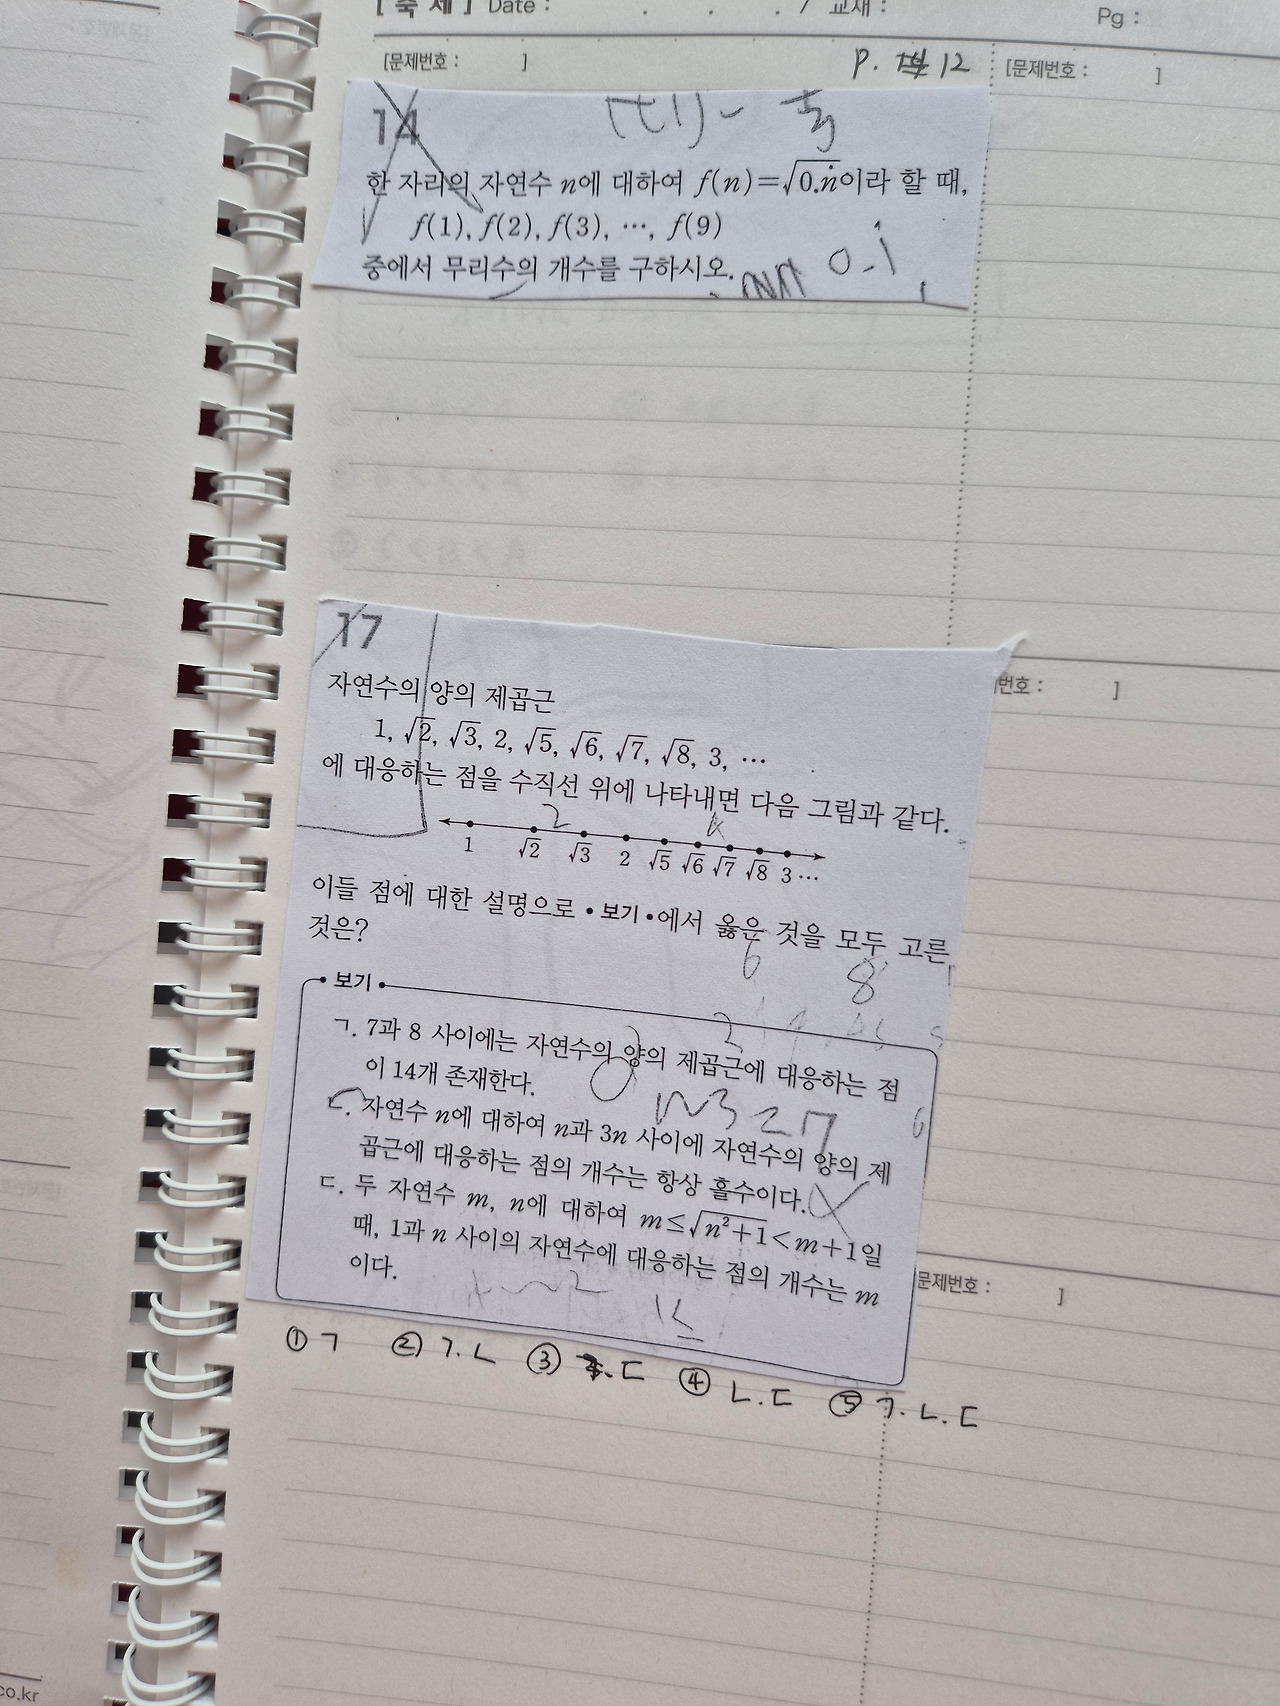 [ 숙 제 ] Date : . . . / 교재 : Pg :
[문제번호 : ] P. 12 [문제번호 : ]
14
한 자리의 자연수 n에 대하여 f(n)=√0.ṅ이라 할 때,
f(1), f(2), f(3), ⋯, f(9)
중에서 무리수의 개수를 구하시오.
0.i
17
자연수의 양의 제곱근
1, √2, √3, 2, √5, √6, √7, √8, 3, ⋯
에 대응하는 점을 수직선 위에 나타내면 다음 그림과 같다.
2
1 √2 √3 2 √5 √6 √7 √8 3 ⋯
이들 점에 대한 설명으로 •보기•에서 옳은 것을 모두 고른
것은?
6 8
• 보기 •
ㄱ. 7과 8 사이에는 자연수의 양의 제곱근에 대응하는 점
이 14개 존재한다.
ㄴ. 자연수 n에 대하여 n과 3n 사이에 자연수의 양의 제
곱근에 대응하는 점의 개수는 항상 홀수이다.
ㄷ. 두 자연수 m, n에 대하여 m≤√n²+1<m+1일
때, 1과 n 사이의 자연수에 대응하는 점의 개수는 m
이다.
① ㄱ ② ㄱ.ㄴ ③ ㄷ ④ ㄴ.ㄷ ⑤ ㄱ.ㄴ.ㄷ
번호 : ]
문제번호 : ]
co.kr